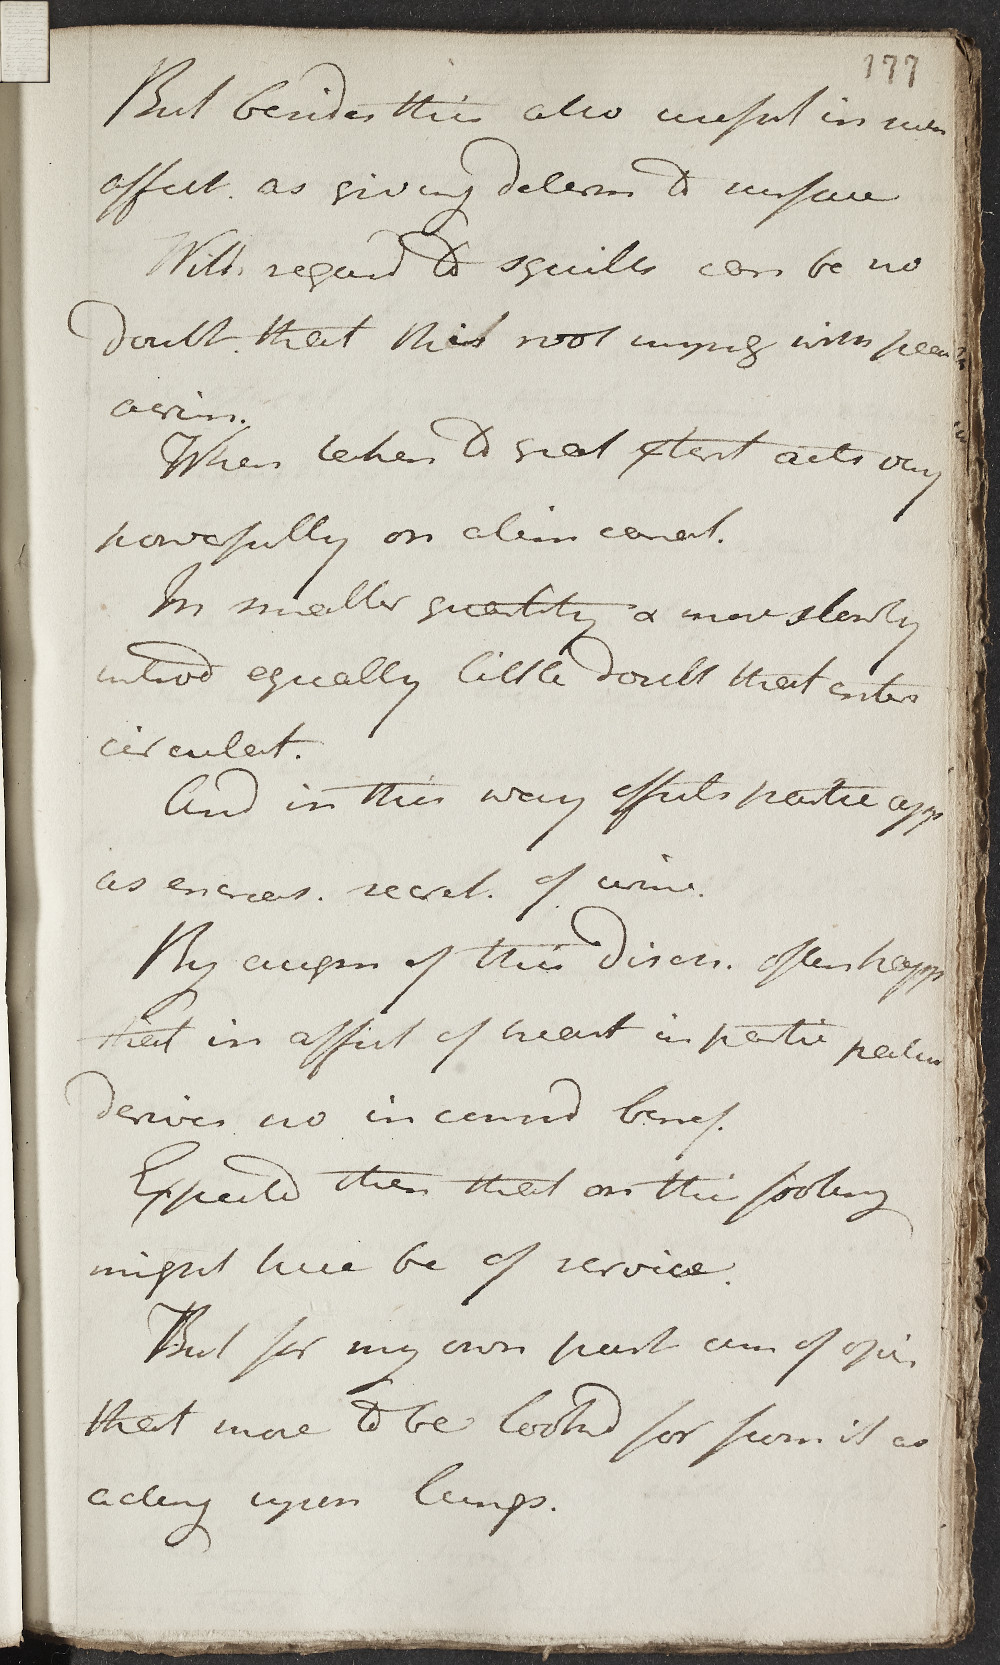 177
But besides this also useful in
affect. as giving determ to surface
With regard to squills can be no
doubt that this root impreg with
acrim.
When taken to great extent acts very
powerfully on alim canal.
In smaller quantity & more slowly
introd equally little doubt that enters
circulat.
And in this way effects partic app
as encreas. secret. of urine.
By augm of this Disch. often happ
that in affect of breast in partic
derives no inconsid benef.
Expected then that on this footing
might here be of service.
But for my own part am of opin
that more to be looked for from it as
acting upon lungs.